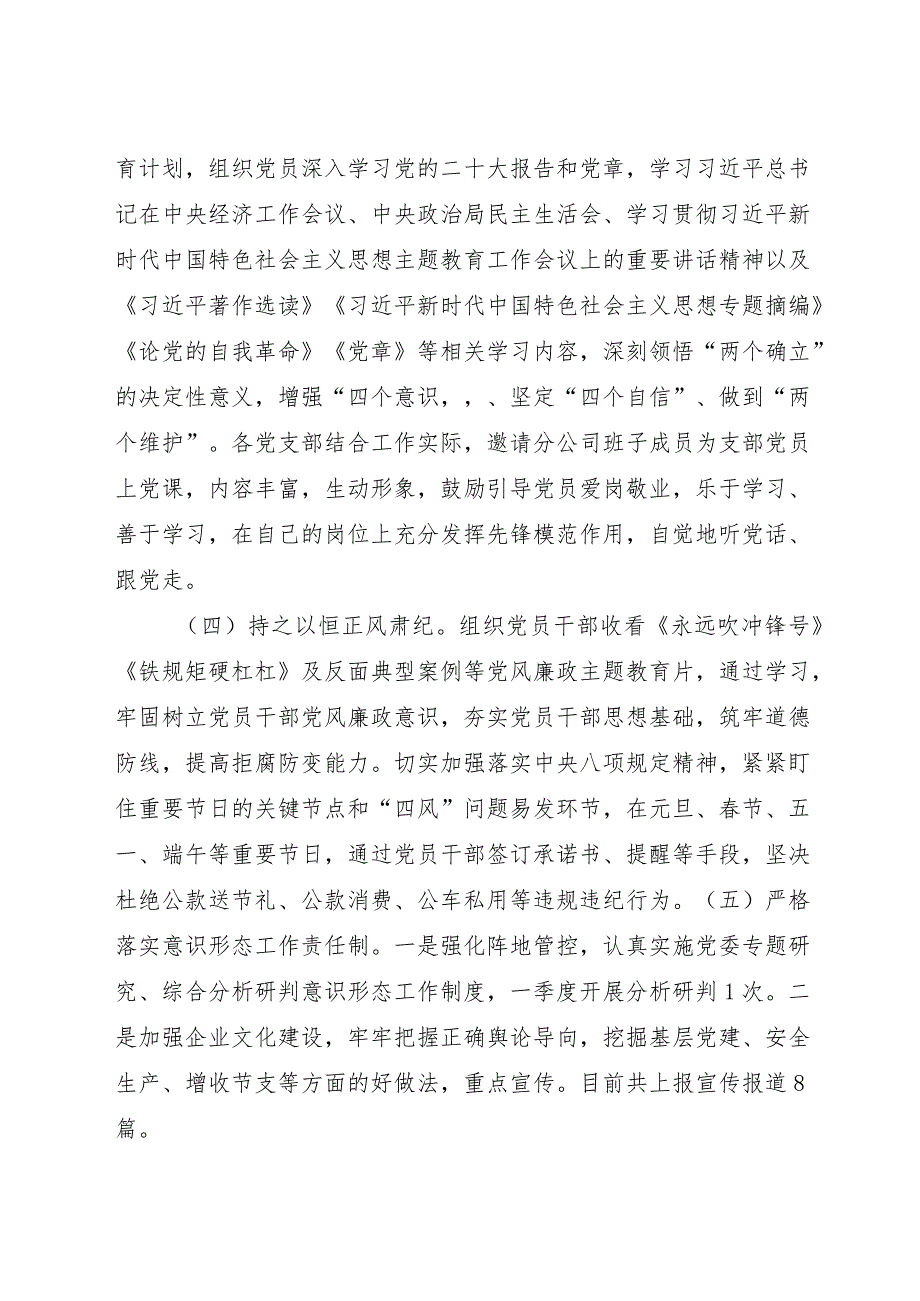 育计划，组织党员深入学习党的二十大报告和党章，学习习近平总书
记在中央经济工作会议、中央政治局民主生活会、学习贯彻习近平新
时代中国特色社会主义思想主题教育工作会议上的重要讲话精神以及
《习近平著作选读》《习近平新时代中国特色社会主义思想专题摘编》
《论党的自我革命》《党章》等相关学习内容，深刻领悟“两个确立”
的决定性意义，增强“四个意识，，、坚定“四个自信”、做到“两
个维护”。各党支部结合工作实际，邀请分公司班子成员为支部党员
上党课，内容丰富，生动形象，鼓励引导党员爱岗敬业，乐于学习、
善于学习，在自己的岗位上充分发挥先锋模范作用，自觉地听党话、
跟党走。
（四）持之以恒正风肃纪。组织党员干部收看《永远吹冲锋号》
《铁规矩硬杠杠》及反面典型案例等党风廉政主题教育片，通过学习，
牢固树立党员干部党风廉政意识，夯实党员干部思想基础，筑牢道德
防线，提高拒腐防变能力。切实加强落实中央八项规定精神，紧紧盯
住重要节日的关键节点和“四风”问题易发环节，在元旦、春节、五
一、端午等重要节日，通过党员干部签订承诺书、提醒等手段，坚决
杜绝公款送节礼、公款消费、公车私用等违规违纪行为。（五）严格
落实意识形态工作责任制。一是强化阵地管控，认真实施党委专题研
究、综合分析研判意识形态工作制度，一季度开展分析研判1次。二
是加强企业文化建设，牢牢把握正确舆论导向，挖掘基层党建、安全
生产、增收节支等方面的好做法，重点宣传。目前共上报宣传报道8
篇。